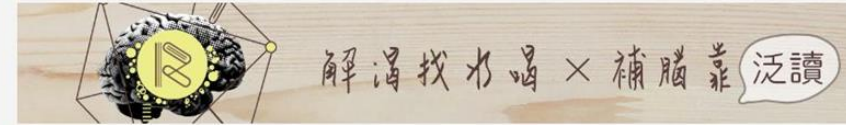 解渴找水喝×補腦靠泛讀